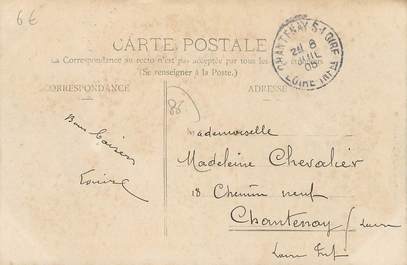 6€
CARTE POSTALE
La Correspondance au recto n'est pas acceptée par tous les
(Se renseigner à la Poste)
CORRESPONDANCE
ADRESSE
CHANTENAY S-LOIRE
8
JUIL
05
LOIRE INFRE
86
Bons baisers
Louise
Mademoiselle
Madeleine Chevalier
18 Chemin neuf
Chantenay / Loire
Loire Inf